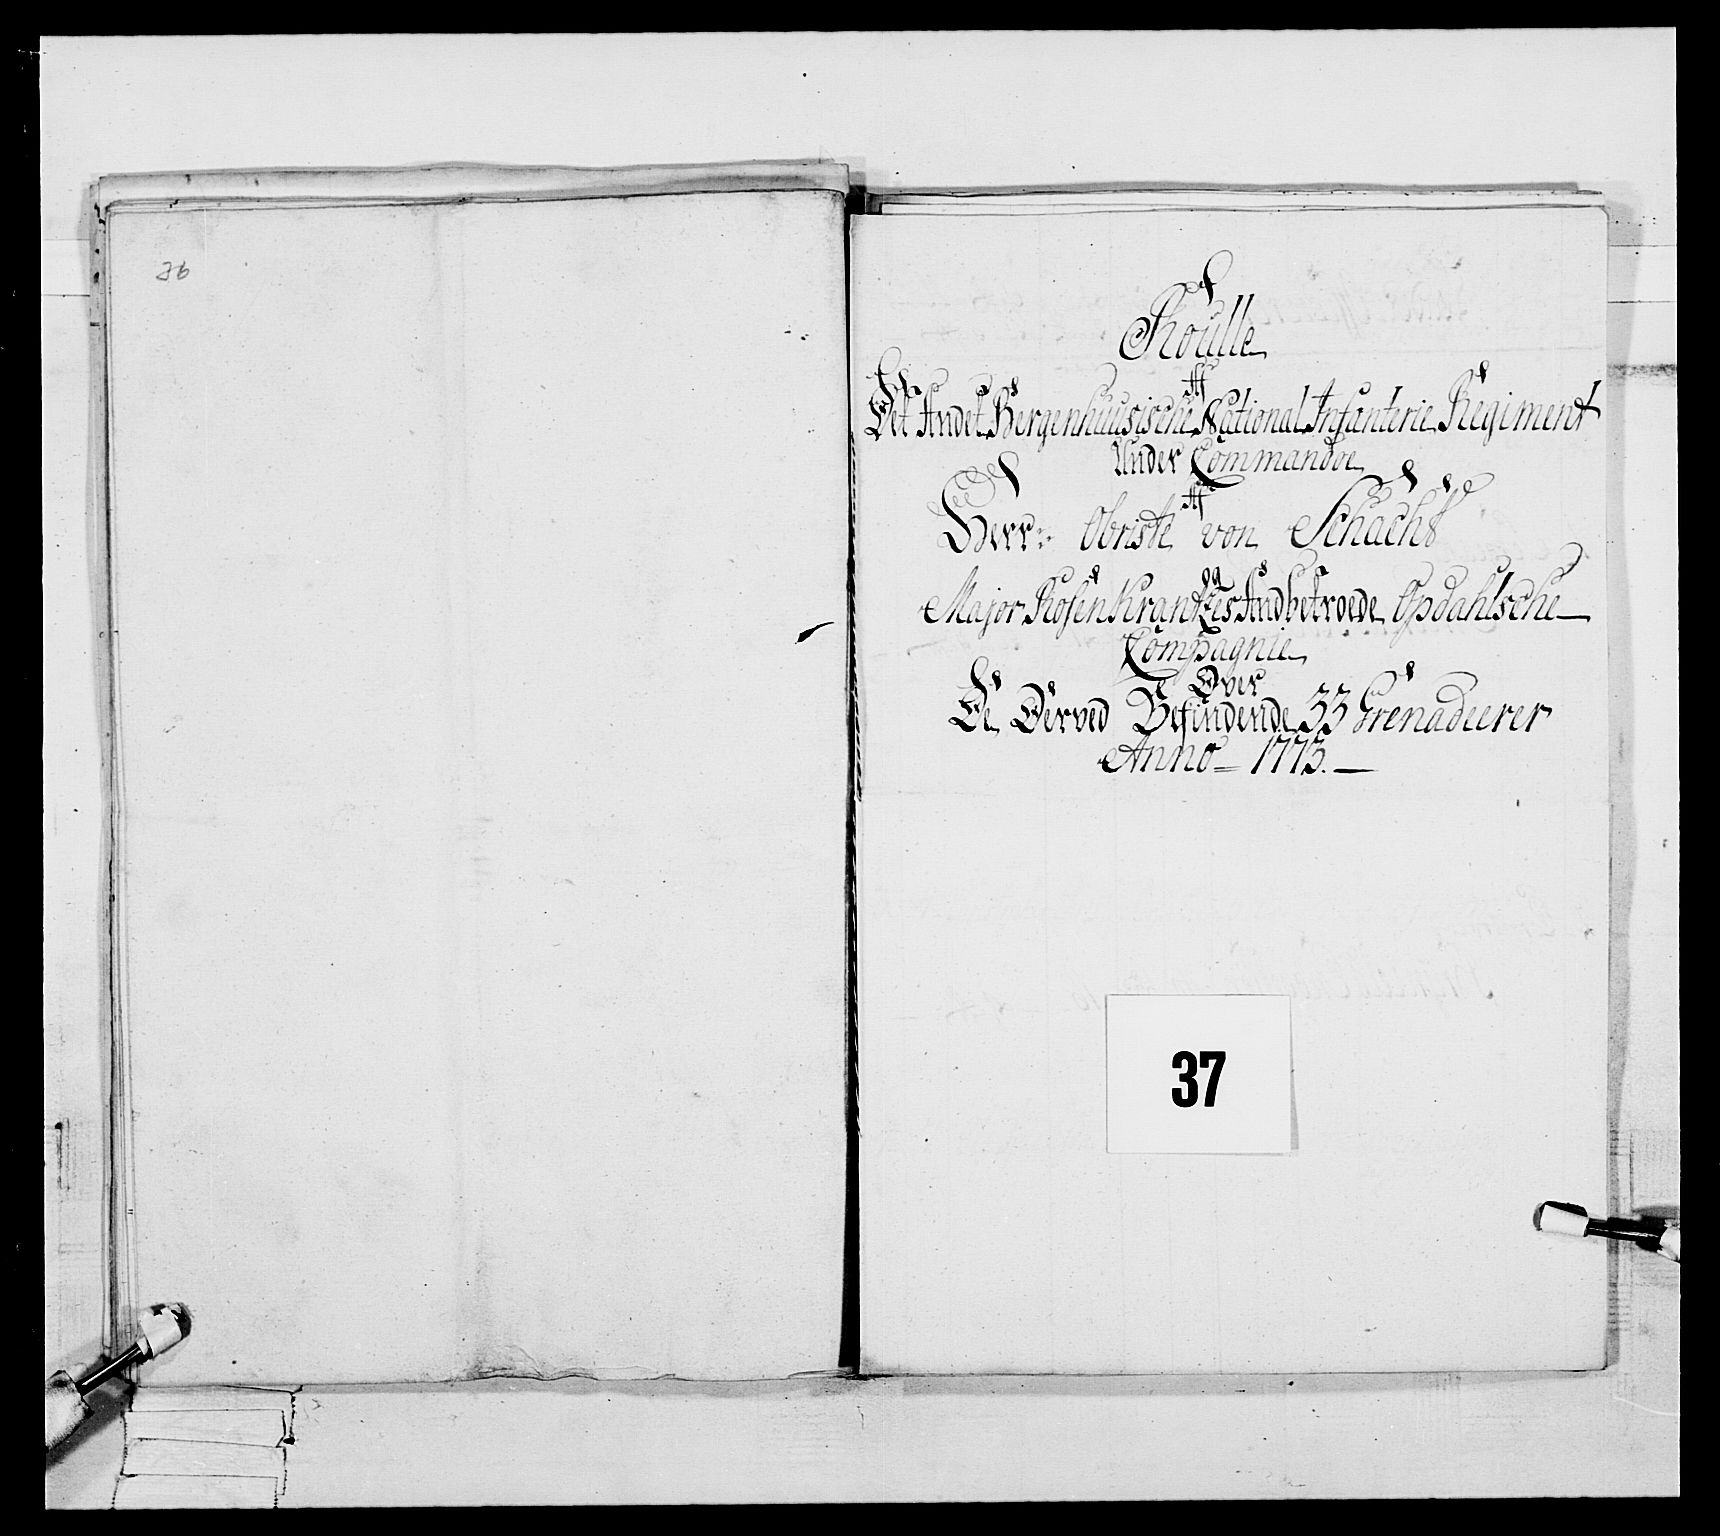 36
Roulle
Af
Det Andet Bergenhuusische National Infanterie Regiment
Under Commandoe
Af
Herr: Obriste von Schacht
og
Major Rosenkrantzes Andbetroede Opdahlsche
Compagnie
Over
De Derved Befindende 33 Grenadeerer
Anno = 1773.
37